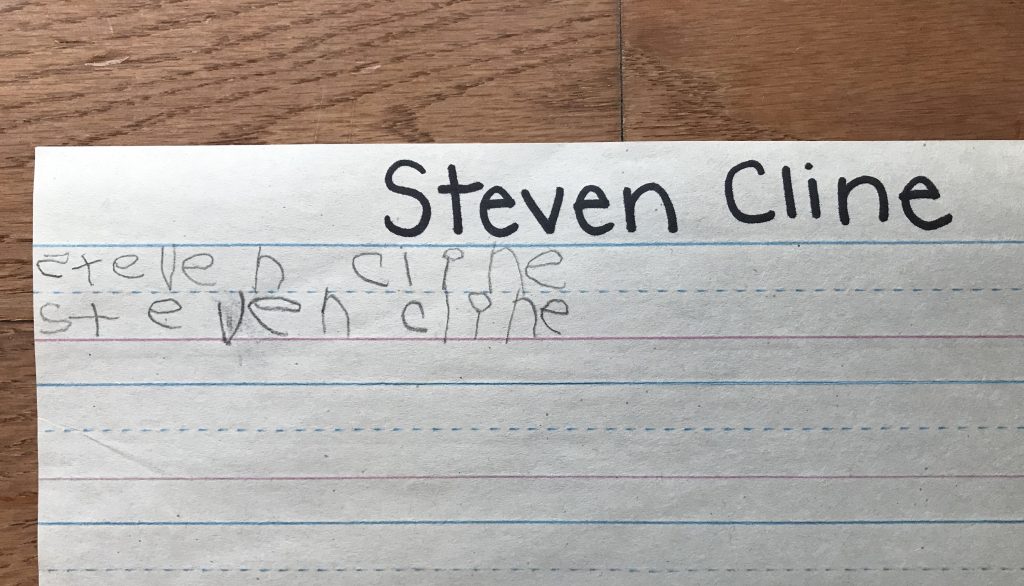 Steven Cline
steven cline
steven cline